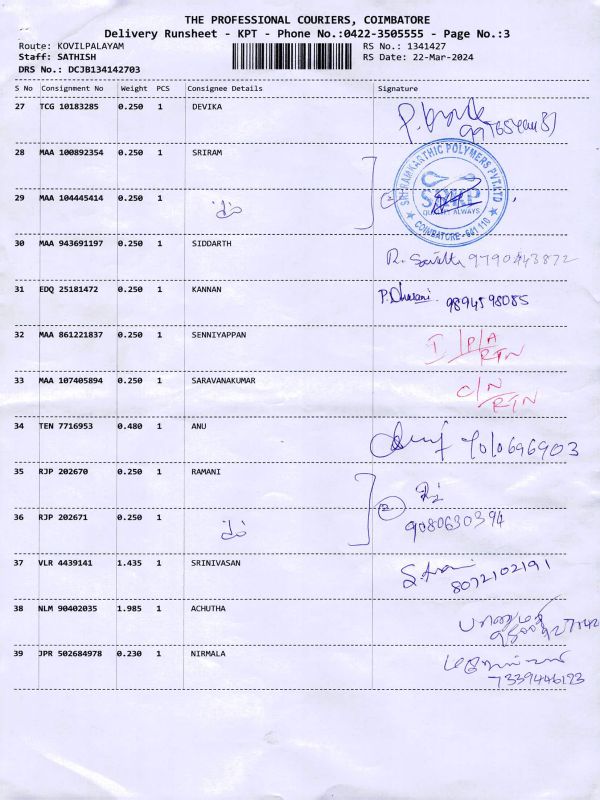 THE PROFESSIONAL COURIERS, COIMBATORE
Delivery Runsheet - KPT - Phone No.:0422-3505555 - Page No.:3
Route: KOVILPALAYAM RS No.: 1341427
Staff: SATHISH RS Date: 22-Mar-2024
DRS No.: DCJB134142703
S No Consignment No Weight PCS Consignee Details Signature
27 TCG 10183285 0.250 1 DEVIKA
28 MAA 100892354 0.250 1 SRIRAM
SRI RAMKARTHIC POLYMERS PVT.LTD
29 MAA 104445414 0.250 1 2
SRKP
QUALITY ALWAYS
COIMBATORE - 641 110
30 MAA 943691197 0.250 1 SIDDARTH
31 EDQ 25181472 0.250 1 KANNAN P. Dharani 9894598085
32 MAA 861221837 0.250 1 SENNIYAPPAN I/P/A
RTN
33 MAA 107405894 0.250 1 SARAVANAKUMAR C/N
RTN
34 TEN 7716953 0.480 1 ANU
35 RJP 202670 0.250 1 RAMANI
36 RJP 202671 0.250 1 2 9080630394
37 VLR 4439141 1.435 1 SRINIVASAN
8072102191
38 NLM 90402035 1.985 1 ACHUTHA
39 JPR 502684978 0.230 1 NIRMALA
7339446123